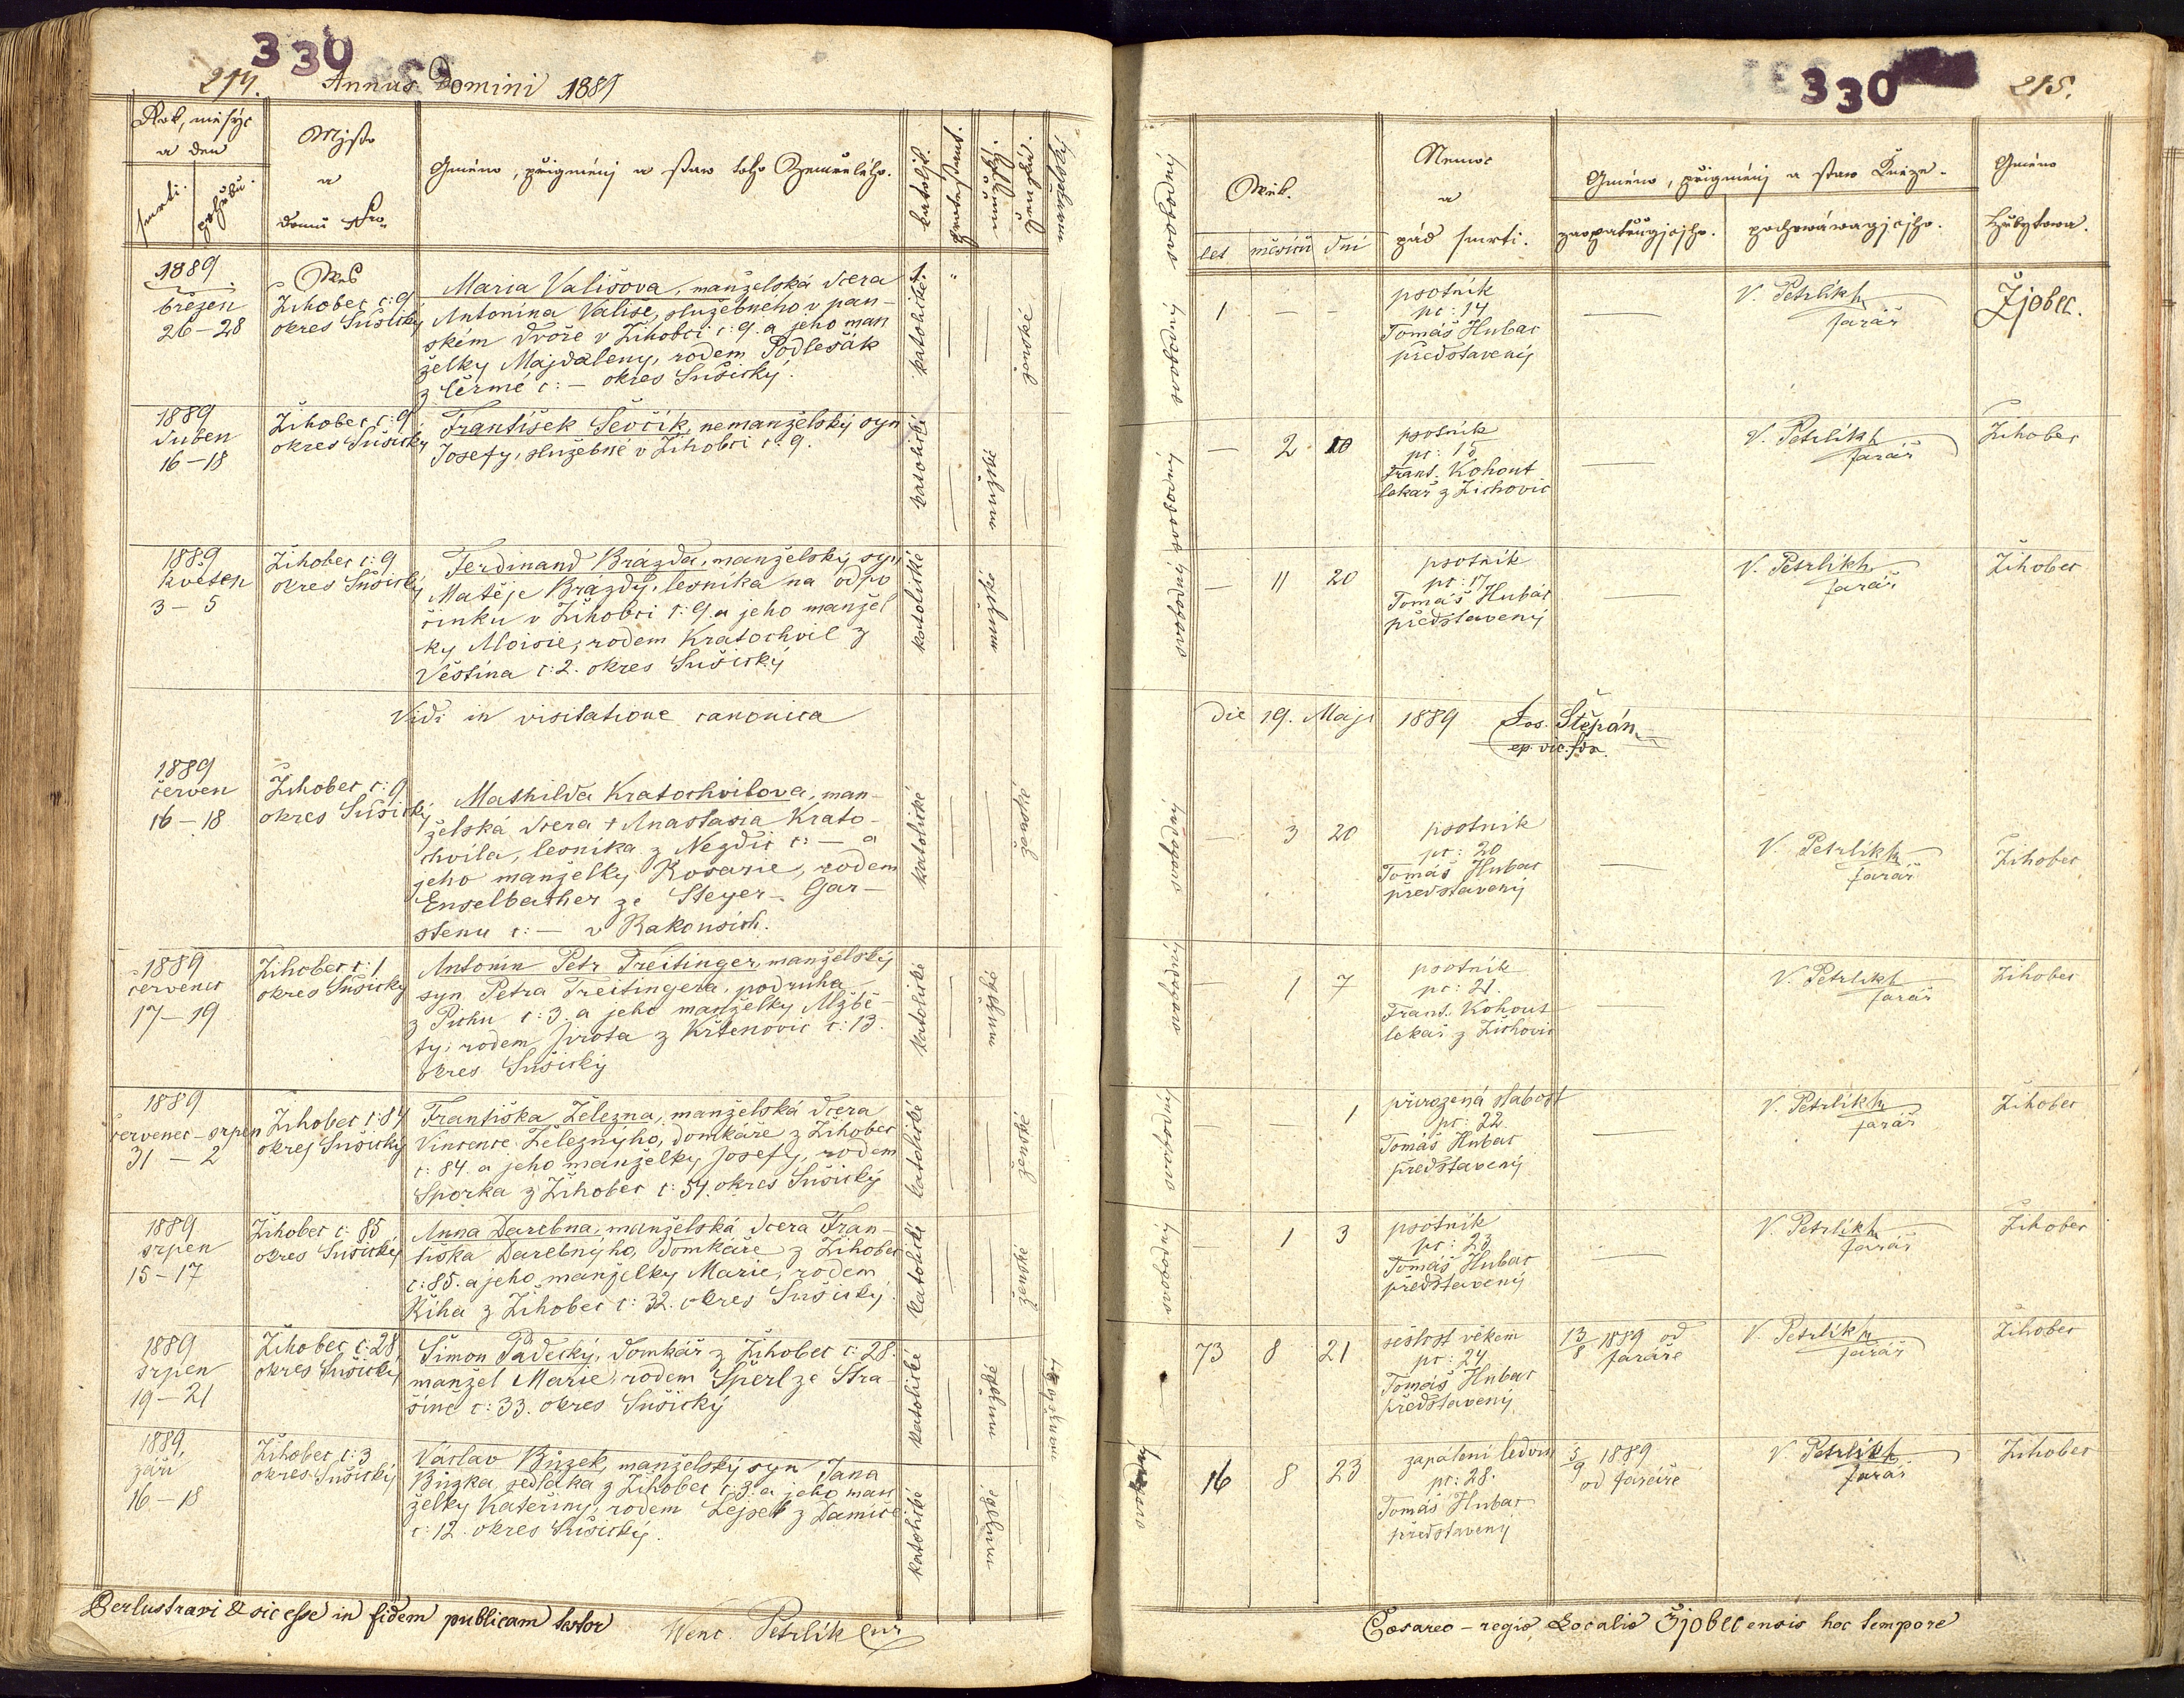 330
214.
Annus Domini 1889
Rok, měsýc
a den
smrti.
pohřbu.
Mjsto
a
domu Nro.
Gméno, přigménj a staw toho Zemřelého.
katoljk.
protestant.
mužské.
ženské.
manželský
1889.
březen
26–28
Wes
Žihobec č: 9
okres Sušický
Maria Vališova, manželská dcera
Antonína Vališe, služebného v pan-
ském dvoře v Žihobci č: 9. a jeho man
želky Majdaleny, rodem Podlešák
z Čermé č: — okres Sušický.
katolické
ženské
1889
duben
16–18
Žihobec č: 9
okres Sušický
František Ševčík, nemanželský syn
Josefy, služebné v Žihobci č: 9.
katolické
mužské
1889
květen
3–5
Žihobec č: 9
okres Sušický
Ferdinand Brázda, manželský syn
Matěje Brázdy, lesníka na odpo
činku v Žihobci č: 9. a jeho manžel
ky Aloisie, rodem Kratochvil z
Věštína č: 2. okres Sušický
katolické
mužské
Vidi in visitatione canonica
1889
červen
16–18
Žihobec č: 9
okres Sušický
Mathilda Kratochvilova, man-
želská dcera + Anastasia Krato-
chvíla, lesníka z Nezdic č: — a
jeho manželky Rosarie, rodem
Enselbacher ze Steyer – Gar-
stenu č: — v Rakousích.
katolické
ženské
1889
červenec
17–19
Žihobec č: 1
okres Sušický
Antonín Petr Treitinger, manželský
syn Petra Treitingera, podruha
z Puchu č: 3. a jeho manželky Alžbě-
ty, rodem Jírota z Krtenovic č: 13.
okres Sušický
katolické
mužské
1889
červenec – srpen
31 – 2
Žihobec č: 84
okres Sušický
Františka Železna, manželská dcera
Vincence Železnýho, domkáře z Žihobec
č: 84. a jeho manželky Josefy, rodem
Sporka z Žihobec č: 54. okres Sušický
katolické
ženské
1889
srpen
15–17
Žihobec č: 85
okres Sušický
Anna Darebna, manželská dcera Fran-
tiška Darebnýho, domkáře z Žihobec
č: 85. a jeho manželky Marie, rodem
Říha z Žihobec č: 32. okres Sušický.
katolické
ženské
1889
srpen
19–21
Žihobec č: 28
okres Sušický
Šimon Padecký, domkář z Žihobec č: 28.
manžel Marie, rodem Šperl ze Stra-
šíně č: 33. okres Sušický
katolické
mužské
1889.
září
16–18
Žihobec č: 3
okres Sušický
Václav Bůzek, manželský syn Jana
Bůzka, sedláka z Žihobec č: 3. a jeho man
želky Kateřiny, rodem Lejsek z Damíče
č: 12. okres Sušický.
katolické
mužské
Perlustravi & sic esse in fidem publicam testor
Wenc. Petrlík Cur
330
215.
Wěk.
let
měsíců
dní
Nemoc
a
pád smrti.
Gméno, přigménj a staw Kněze.
zaopatřugjcjho.
pochowáwagjcjho.
Gméno
hřbytowa.
svobodný
1 — —
psotník
pč: 14
Tomáš Hubač
představený
V. Petrlík
farář
Žjobec.
svobodný
— 2 10
psotník
pč: 15
Frant. Kohout
lékař z Žichovic
V. Petrlík
farář
Žihobec
svobodný
— 11 20
psotník
pč: 17
Tomáš Hubač
představený
V. Petrlík
farář
Žihobec
die 19. Maji 1889 Jos. Štěpán
ep. vic. for.
svobodný
— 3 20
psotník
pč: 20
Tomáš Hubač
představený
V. Petrlík
farář
Žihobec
svobodný
— 1 7
psotník
pč: 21.
Frant. Kohout
lékař z Žichovic
V. Petrlík
farář
Žihobec
svobodný
— 1
přirozená slabost
pč: 22.
Tomáš Hubač
představený
V. Petrlík
farář
Žihobec
svobodný
— 1 3
psotník
pč: 23
Tomáš Hubač
představený
V. Petrlík
farář
Žihobec
73 8 21
sešlost věkem
pč: 24
Tomáš Hubač
představený
13/8 1889 od
faráře
V. Petrlík
farář
Žihobec
svobodný
16 8 23
zapálení ledvin
pč: 28.
Tomáš Hubač
představený
5/9 1889
od faráře
V. Petrlík
farář
Žihobec
Cæsareo – regio Localis Žjobecensis hoc tempore